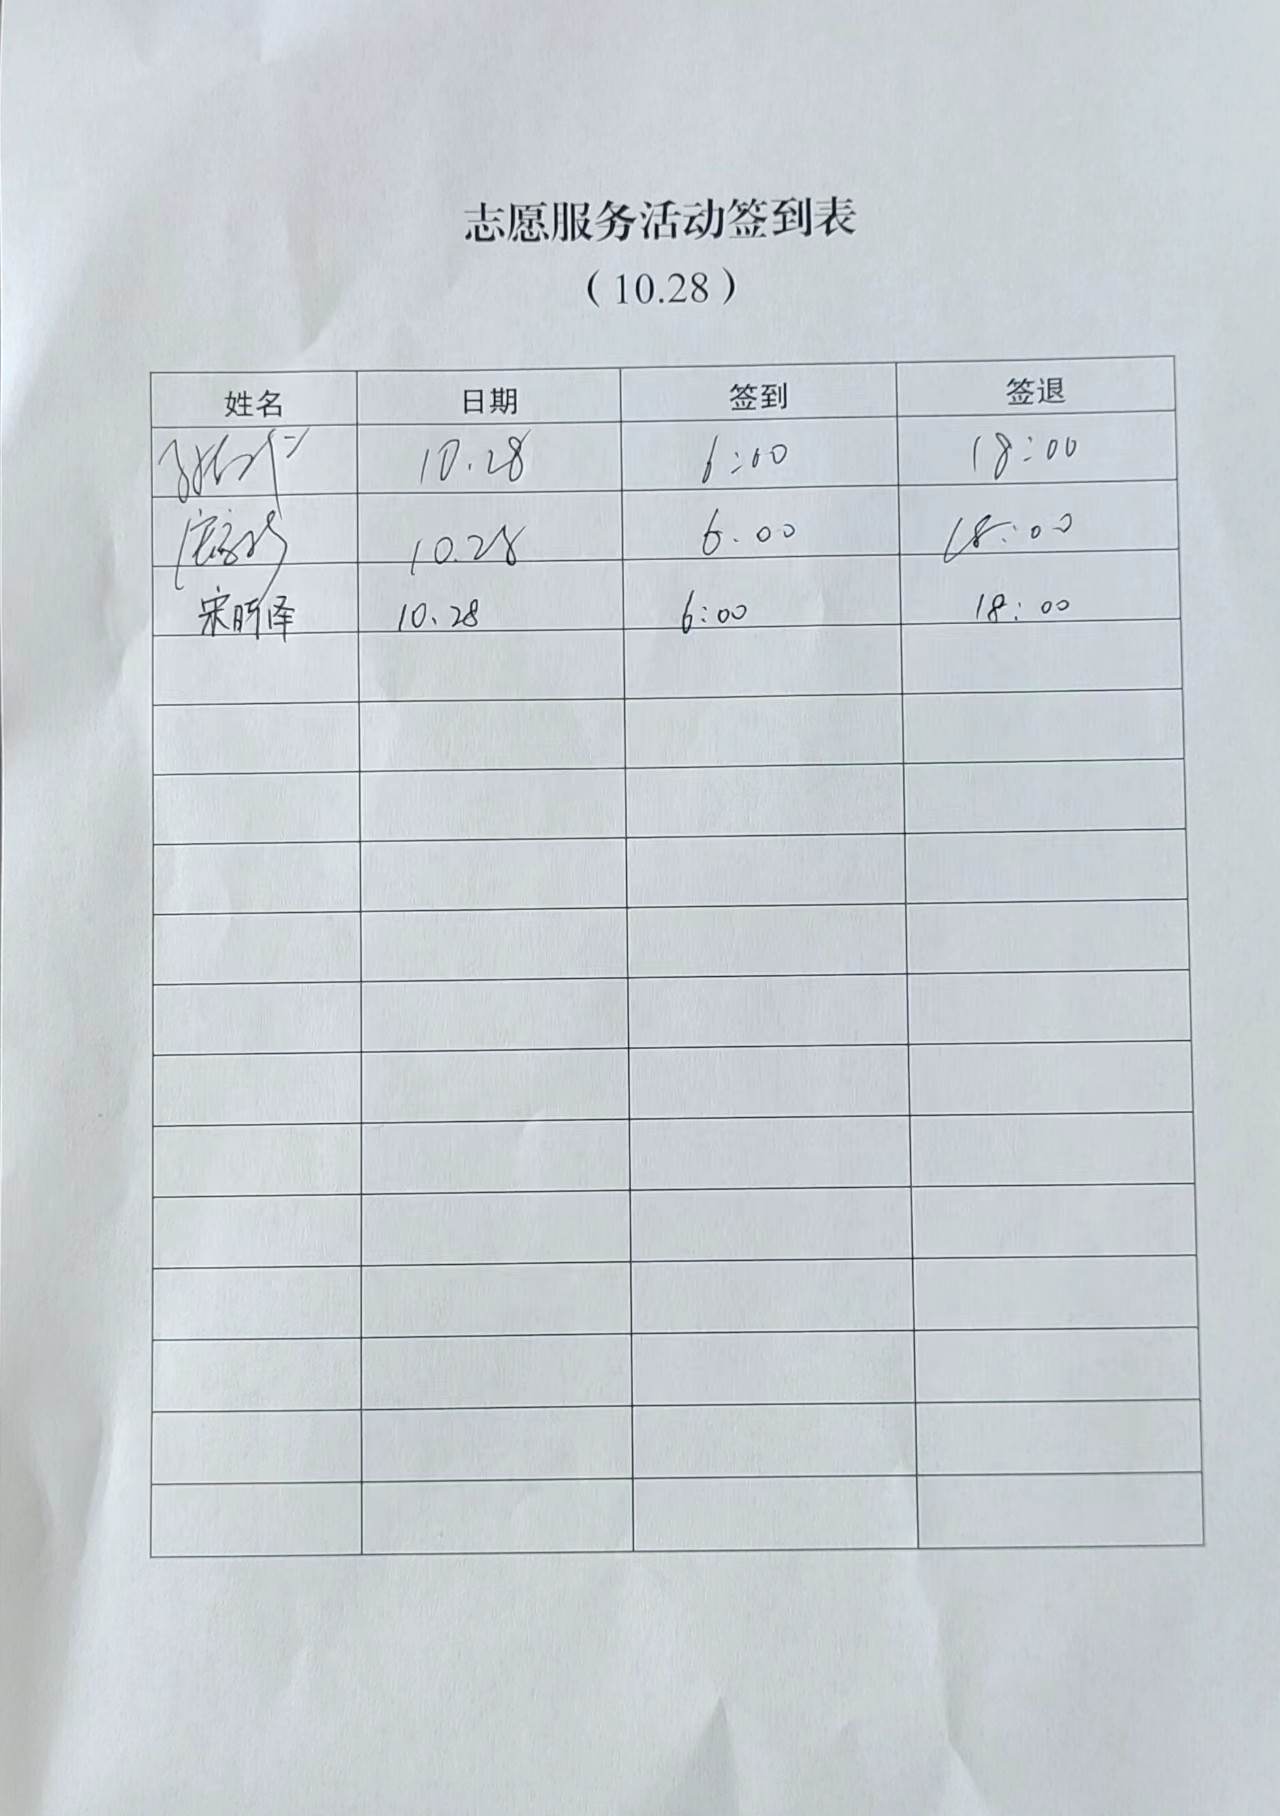 志愿服务活动签到表
（10.28）
姓名 日期 签到 签退
10.28 6:00 18:00
10.28 6.00 18:00
宋昕泽 10.28 6:00 18:00